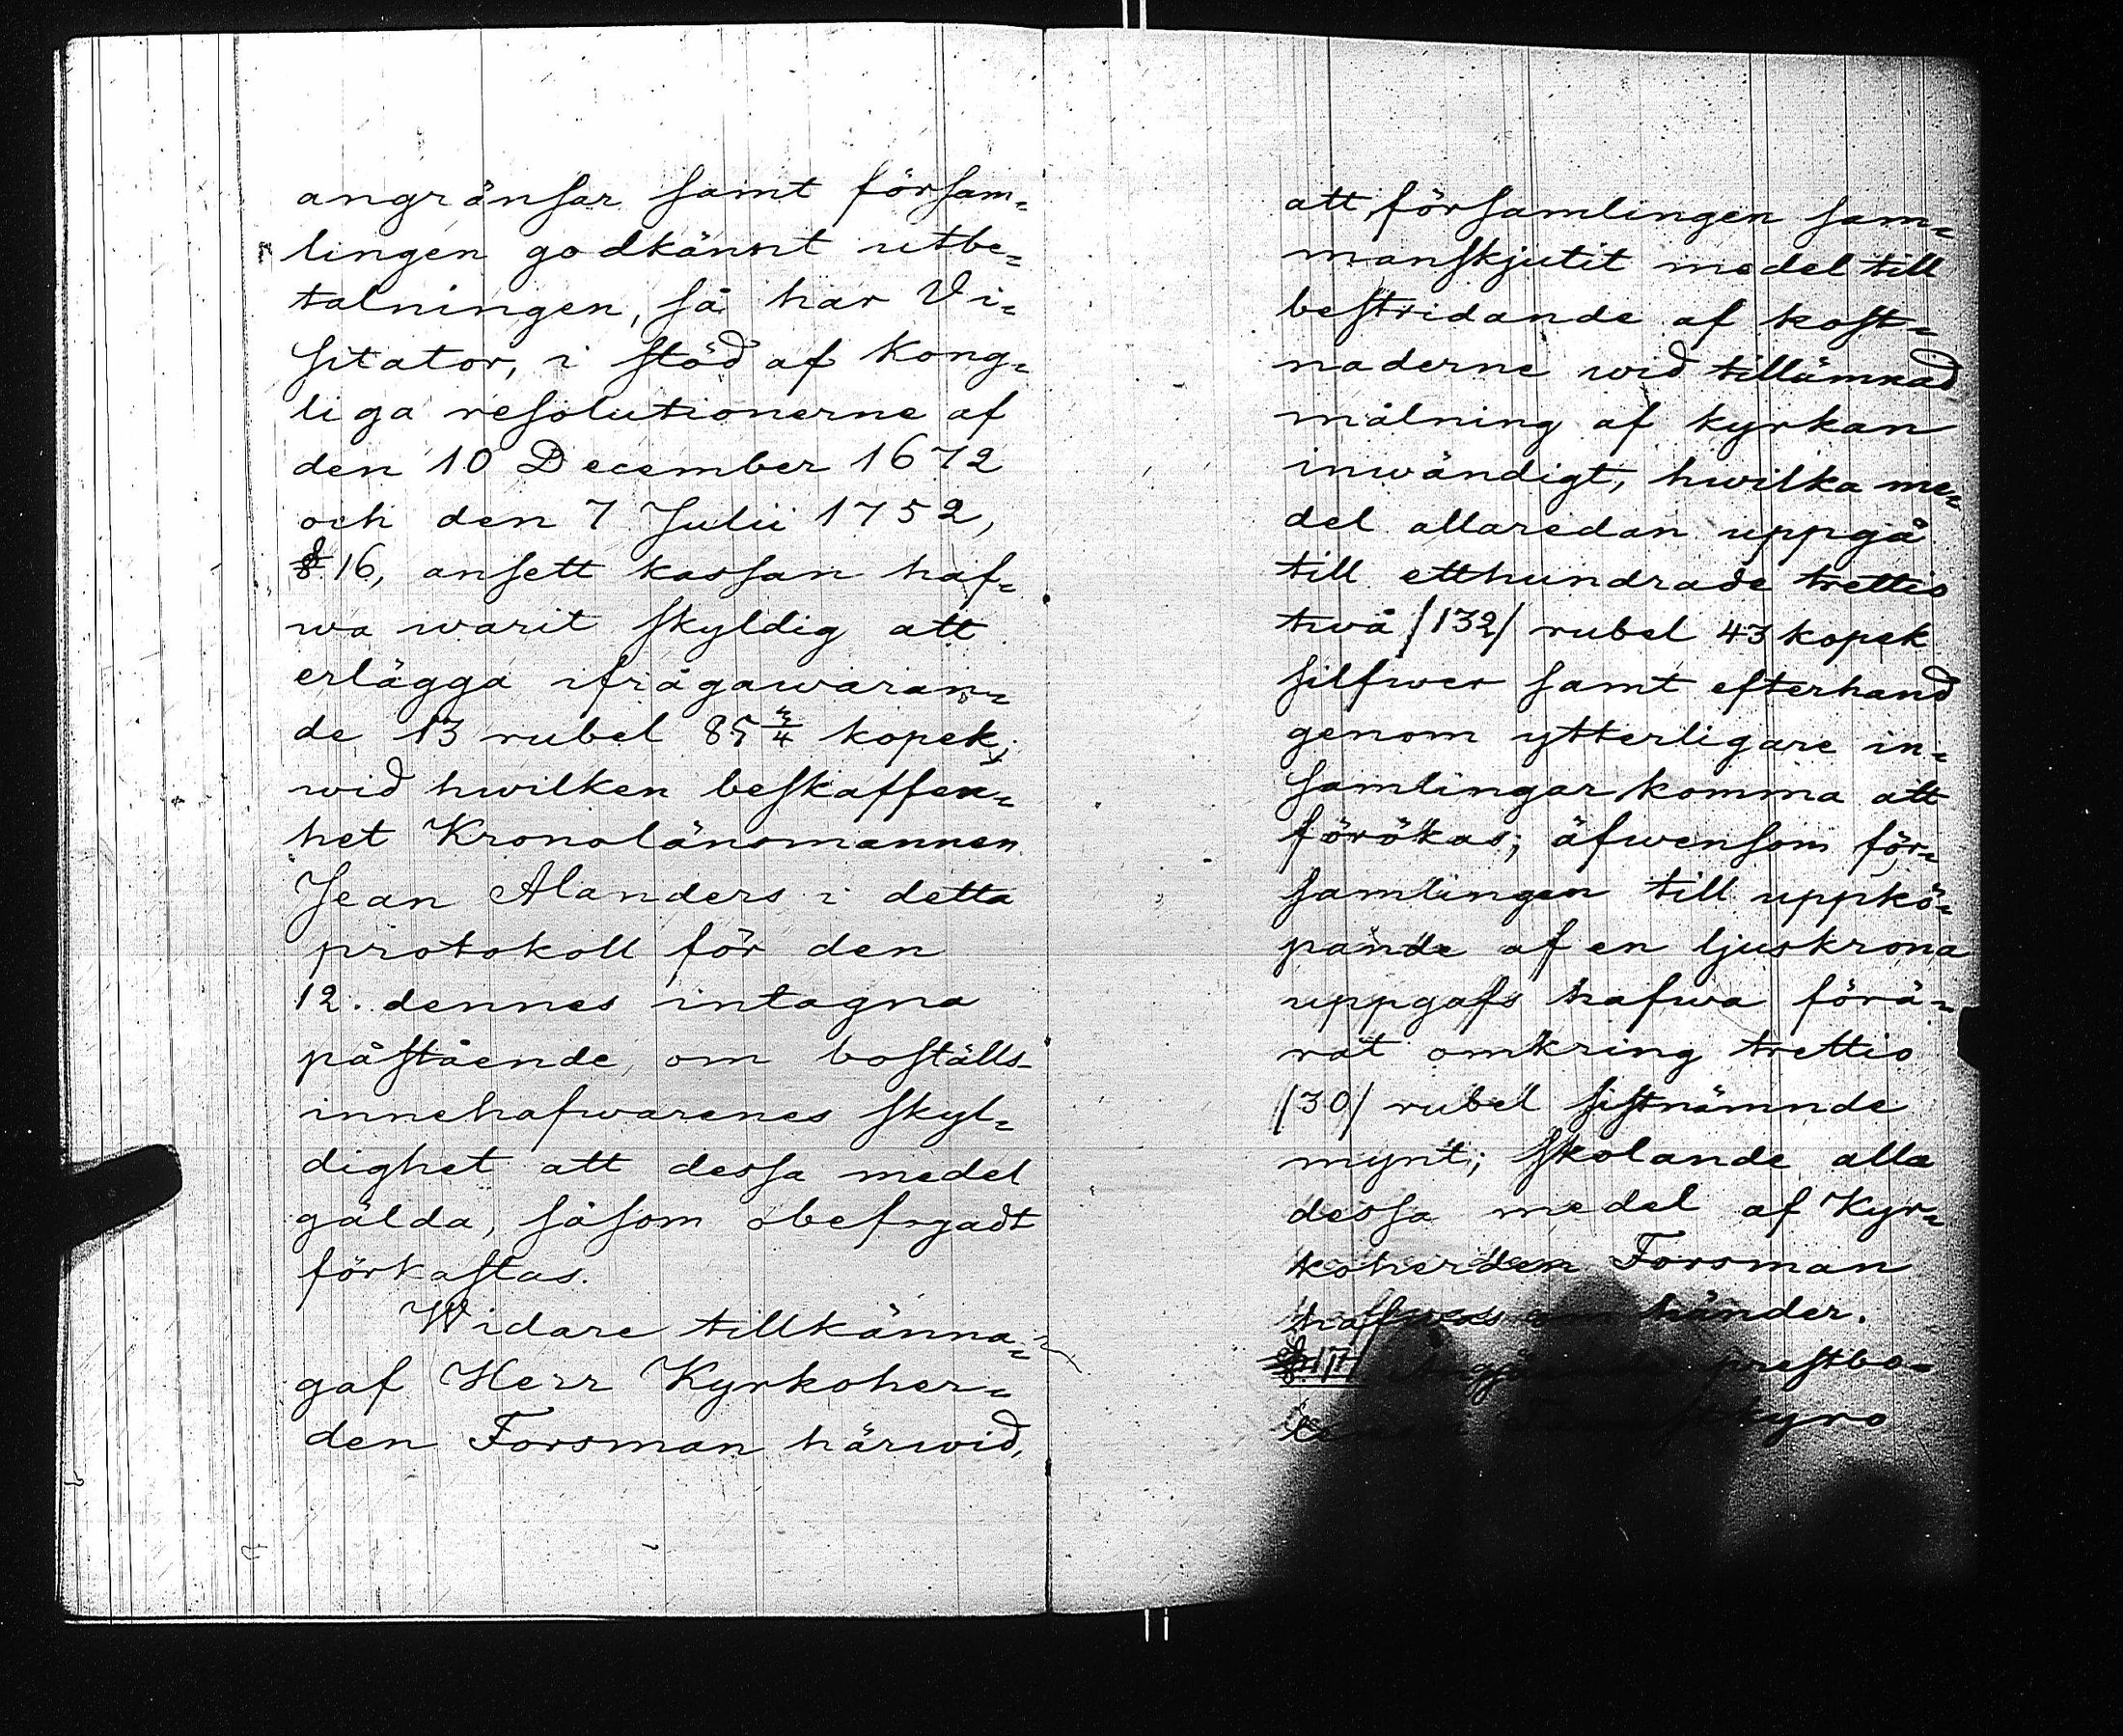 angränsar samt försam=
lingen godkännt utbe=
talningen, så har Vi=
sitator, i stöd af Kong=
liga resolutionerne af
den 10 December 1672
och den 7 Julii 1752,
§ 16, ansett kassan haf=
wa warit skyldig att
erlägga ifrågawaran=
de 13 rubel 85 3/4 kopek;
wid hwilken beskaffen=
het Kronolänsmannen
Jean Alanders i detta
protokoll för den
12. dennes intagna
påstående om boställs-
innehafwarenes skyl=
dighet att dessa medel
gälda, såsom obefogadt
förkastas.
Widare tillkänna=
gaf Herr Kyrkoher=
den Forsman härwid,
att församlingen sam=
manskjutit medel till
bestridande af kost=
naderne wid tillämnad
målning af kyrkan
inwändigt, hwilka me=
del allaredan uppgå
till etthundrade trettio
twå /132/ rubel 43 kopek
silfwer samt efterhand
genom ytterligare in=
samlingar komma att
förökas; äfwensom för=
samlingen till uppkö=
pande af en ljuskrona
uppgafs hafwa förä=
rat omkring trettio
/30/ rubel sistnämnde
mynt; skolande alla
dessa medel af Kyr=
koherden Forsman
hafwas om händer.
§ 17 Angående prestbo=
kyro